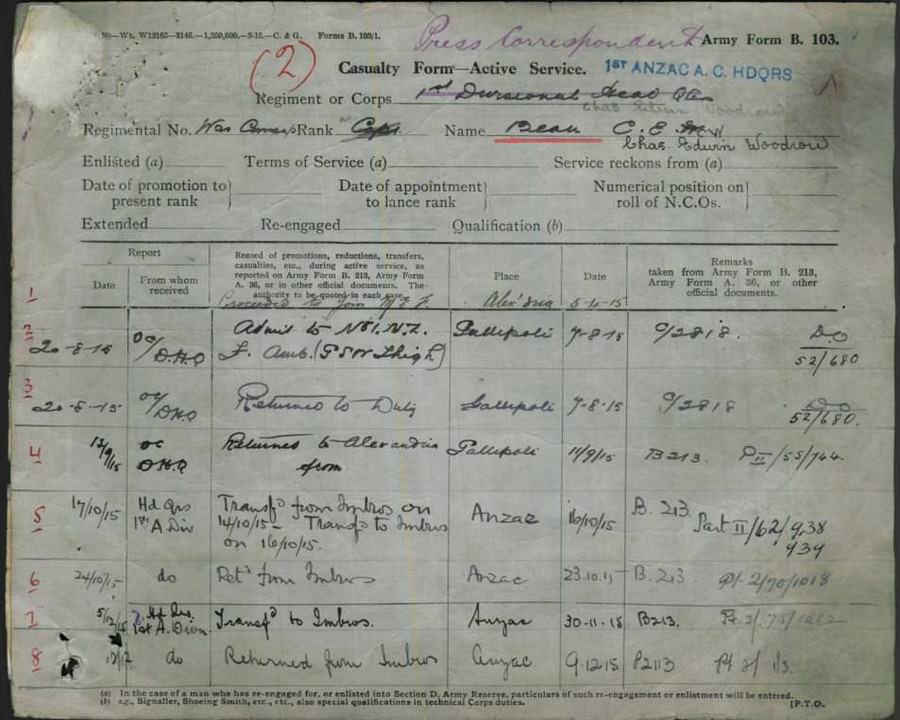 Wt. W12165—2146.—1,250,000.—2-15.—C. & G. Forms B. 103/1.
Press Correspondent
Army Form B. 103.
(2)
Casualty Form—Active Service.
1ST ANZAC A. C. HDQRS
Regiment or Corps 1st Divisional Head Qrs
Chas Edwin Woodrow
Regimental No. War Corresp Rank Capt. Name Bean C. E. W
Chas. Edwin Woodrow
Enlisted (a) Terms of Service (a) Service reckons from (a)
Date of promotion to present rank } Date of appointment to lance rank } Numerical position on roll of N.C.Os. }
Extended Re-engaged Qualification (b)
Report
Date
From whom received
Record of promotions, reductions, transfers, casualties, etc., during active service, as reported on Army Form B. 213, Army Form A. 36, or in other official documents. The authority to be quoted in each case.
Place
Date
Remarks taken from Army Form B. 213, Army Form A. 36, or other official documents.
1 Proceeded to join M.E.F. Alex'dria 5-4-15
2 20-8-15 Admit to No1. N.Z. F. Amb. (GSW Thigh) Gallipoli 7-8-15 C/2818. DO 52/680
3 20-8-15 Returned to Duty Gallipoli 7-8-15 C/2818 DO 52/680.
4 13/9/15 OC DHQ Returned to Alexandria from Gallipoli 11/9/15 B213. PII/55/744.
5 17/10/15 Hd Qrs 1st A Div Transfd from Imbros on 14/10/15 – Transfd to Imbros on 16/10/15. Anzac 16/10/15 B. 213. Part II/62/938 939
6 24/10/15 do Retd from Imbros Anzac 23.10.15 B. 213 Pt 2/70/1018
7 5/12/15 Hd Qrs. 1st A. Divn. Transfd to Imbros. Anzac 30-11-15 B213.
8 do Returned from Imbros Anzac 9.12.15
(a) In the case of a man who has re-engaged for, or enlisted into Section D, Army Reserve, particulars of such re-engagement or enlistment will be entered.
(b) e.g., Signaller, Shoeing Smith, etc., etc., also special qualifications in technical Corps duties.
[P.T.O.